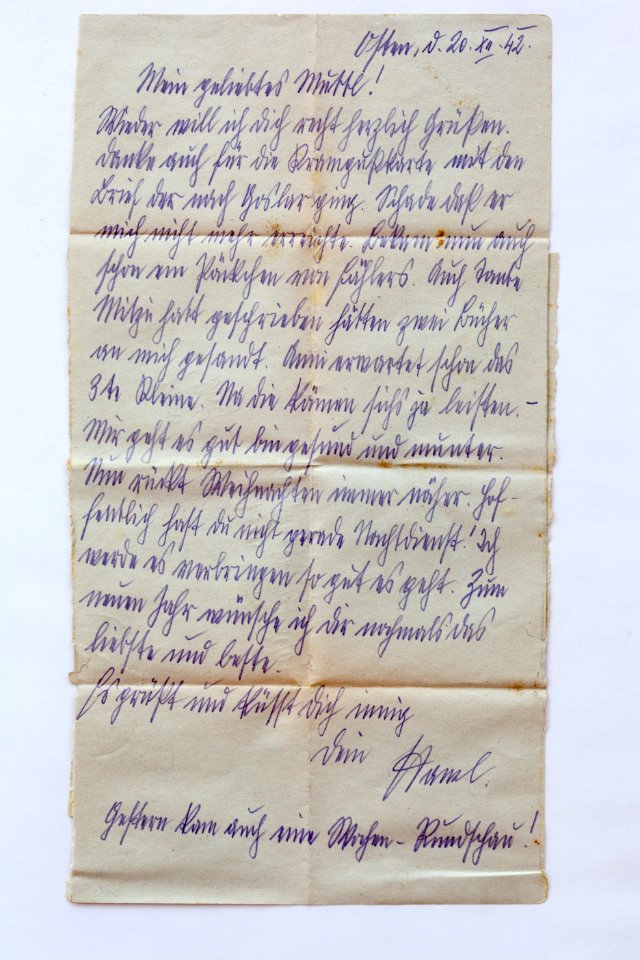 Osten, d. 20. XII. 42.
Mein geliebtes Muttl!
Wieder will ich dich recht herzlich Grüßen.
Danke auch für die Krampußkarte mit den
Brief der nach Goslar ging. Schade daß er
mich nicht mehr erreichte. Bekam nun auch
schon ein Päckchen von Fählers. Auch Tante
Mitzi hatt geschrieben hätten zwei Bücher
an mich gesandt. Anni erwartet schon das
3te Kleine. Na die können sichs ja leisten.–
Mir geht es gut bin gesund und munter.
Nun rückt Weihnachten immer näher. Hof-
fentlich hast du nicht gerade Nachtdienst! Ich
werde es verbringen so gut es geht. Zum
neuen Jahr wünsche ich dir nochmals das
liebste und beste.
Es grüßt und küsst Dich innig
Dein
Gestern kam auch eine Wochen-Rundschau!